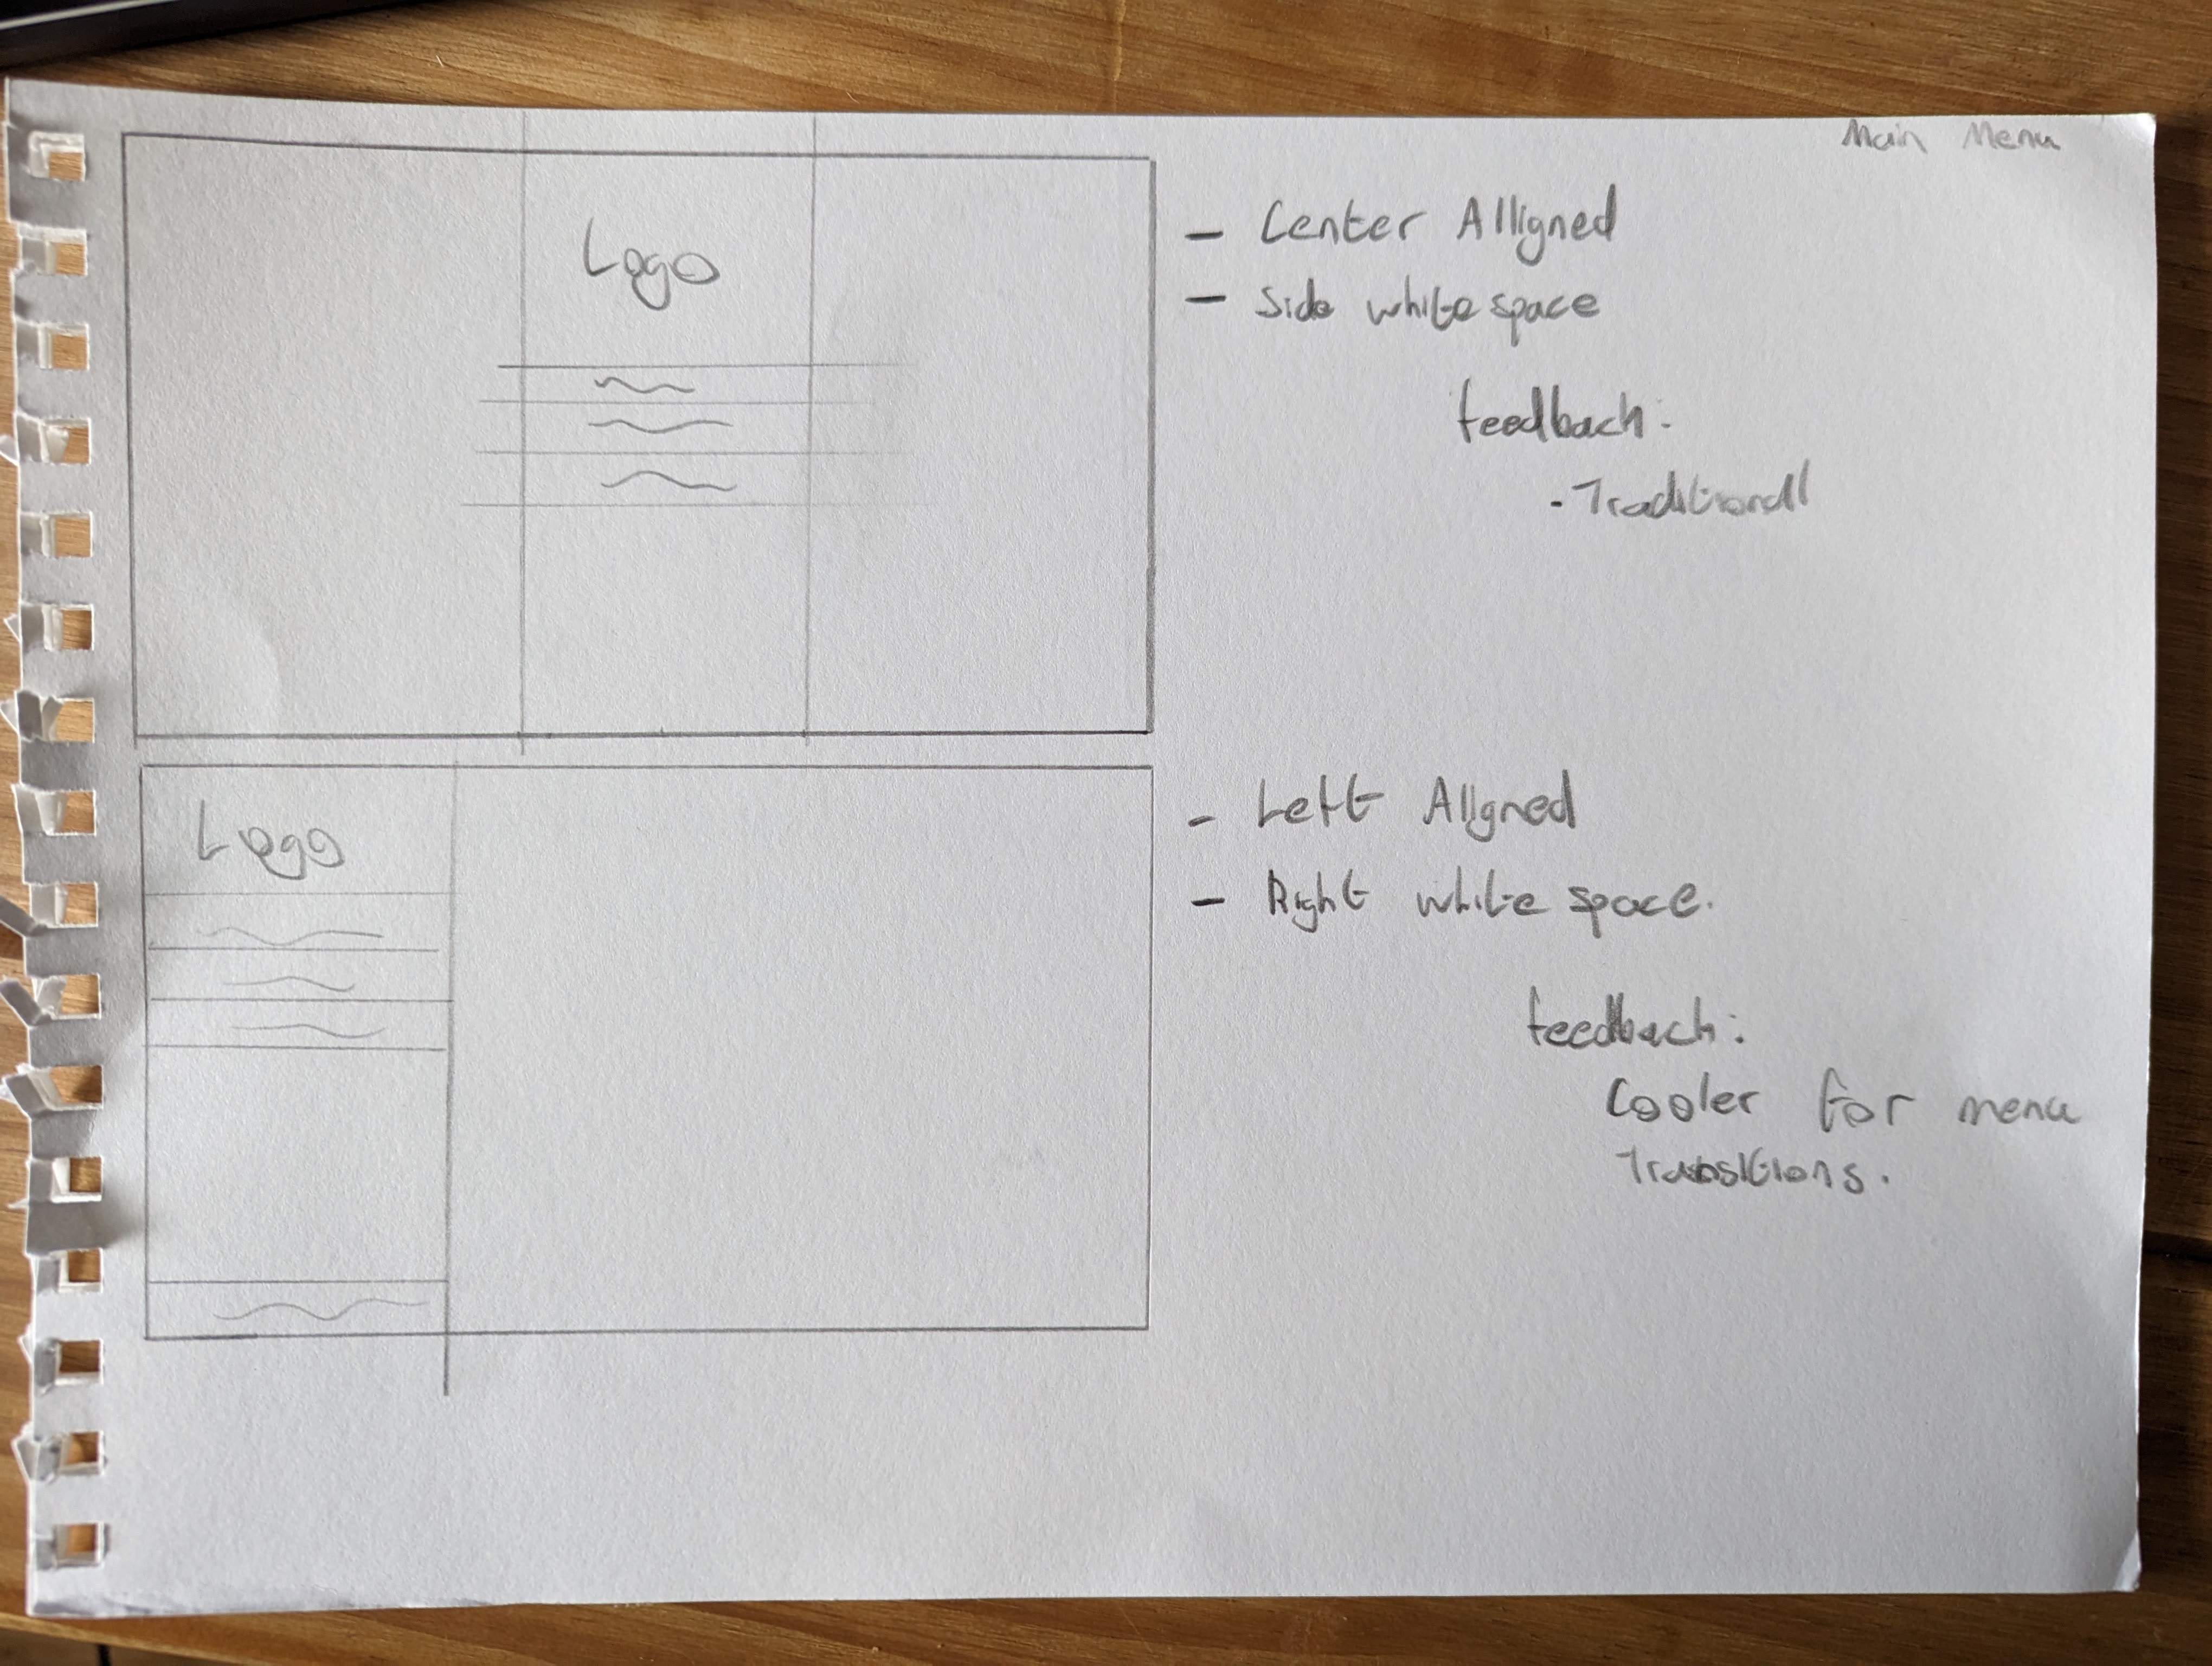 Main Menu
Logo
- Center Alligned
- Side white space
feedback:
- Traditionall
Logo
- Left Alligned
- Right white space.
feedback:
Cooler for menu
Transitions.